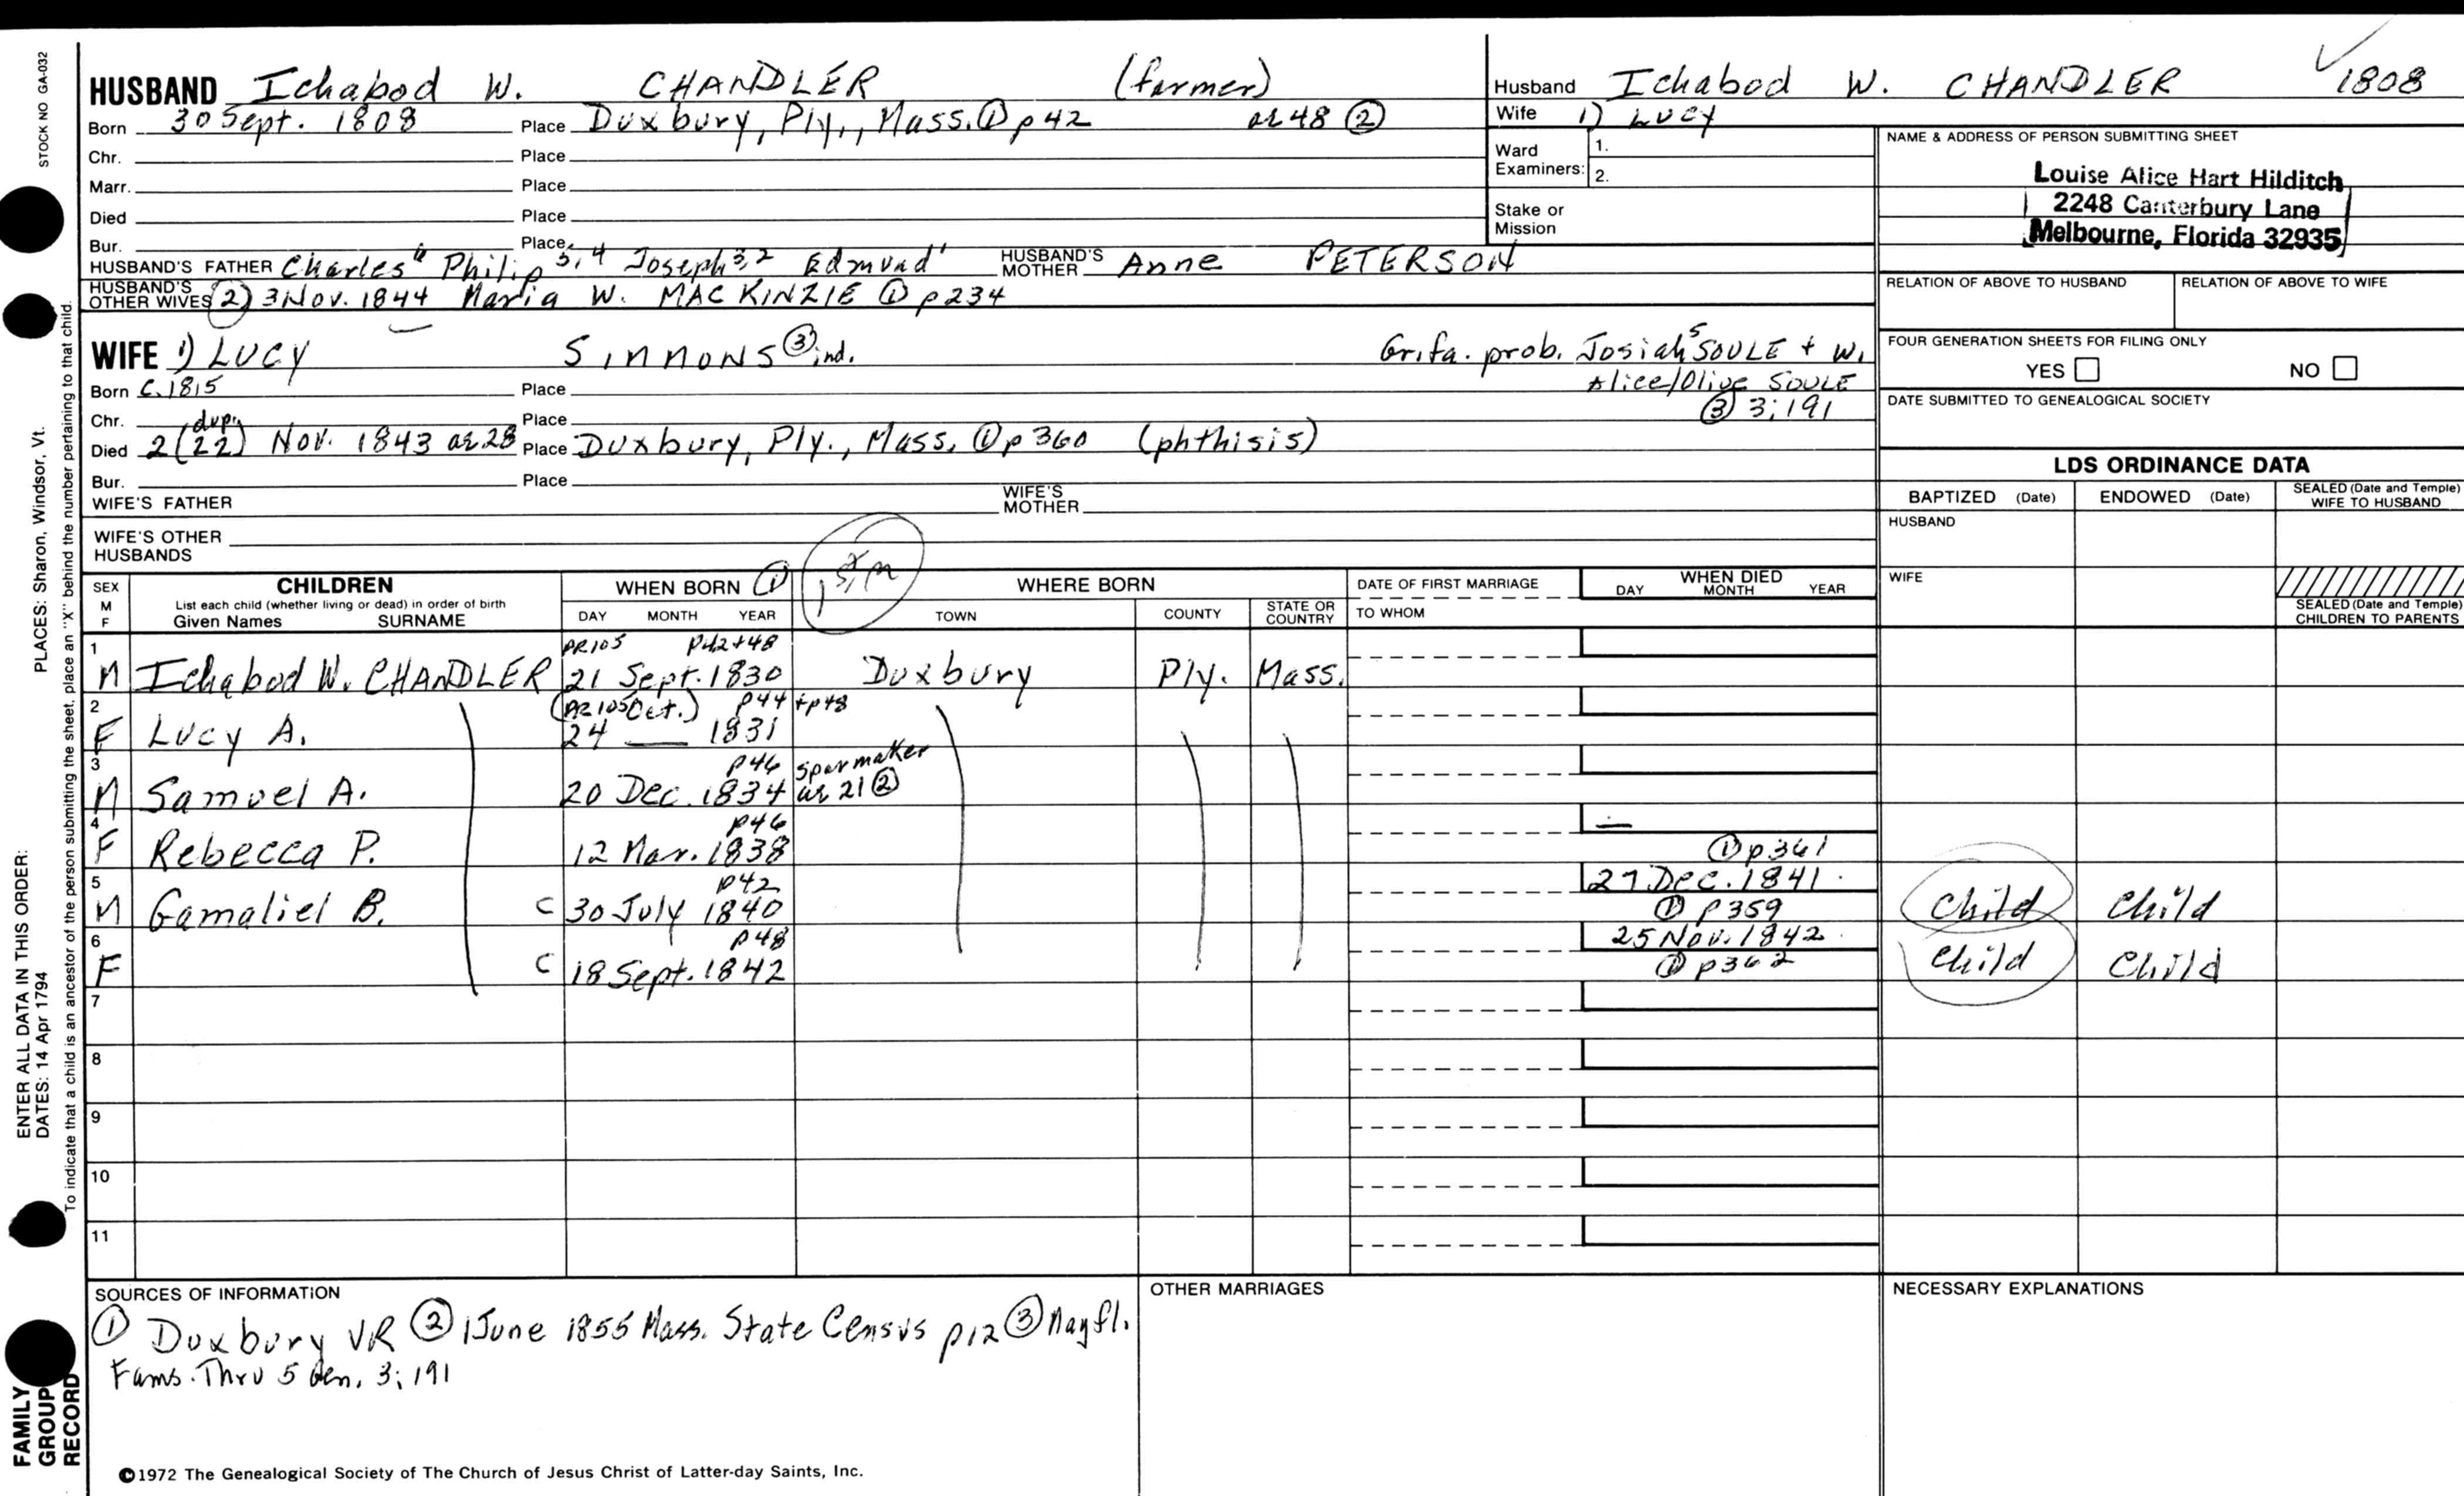 STOCK NO GA-032
HUSBAND Ichabod W. CHANDLER (farmer)
Born 30 Sept. 1808 Place Duxbury, Ply., Mass. ① p42 ae 48 ②
Chr. Place
Marr. Place
Died Place
Bur. Place
HUSBAND'S FATHER Charles Philip Joseph Edmund HUSBAND'S MOTHER Anne PETERSON
HUSBAND'S OTHER WIVES (2) 3 Nov. 1844 Maria W. MACKINZIE ① p234
WIFE 1) LUCY SIMMONS ③ ind. Grifa. prob. Josiah⁵ SOULE + W.
Alice/Olive SOULE
③ 3:191
Born C. 1815 Place
Chr. Place
Died 2 (22 dup.) Nov. 1843 ae 28 Place Duxbury, Ply., Mass. ① p360 (phthisis)
Bur. Place
WIFE'S FATHER WIFE'S MOTHER
WIFE'S OTHER HUSBANDS
Husband Ichabod W. CHANDLER 1808
Wife 1) LUCY
Ward Examiners: 1.
2.
Stake or Mission
NAME & ADDRESS OF PERSON SUBMITTING SHEET
Louise Alice Hart Hilditch
2248 Canterbury Lane
Melbourne, Florida 32935
RELATION OF ABOVE TO HUSBAND RELATION OF ABOVE TO WIFE
FOUR GENERATION SHEETS FOR FILING ONLY
YES NO
DATE SUBMITTED TO GENEALOGICAL SOCIETY
LDS ORDINANCE DATA
BAPTIZED (Date) ENDOWED (Date) SEALED (Date and Temple) WIFE TO HUSBAND
HUSBAND
WIFE
SEALED (Date and Temple) CHILDREN TO PARENTS
SEX M F CHILDREN WHEN BORN ① WHERE BORN DATE OF FIRST MARRIAGE WHEN DIED
List each child (whether living or dead) in order of birth
Given Names SURNAME DAY MONTH YEAR TOWN COUNTY STATE OR COUNTRY TO WHOM DAY MONTH YEAR
1 PR105 p42+48
M Ichabod W. CHANDLER 21 Sept. 1830 Duxbury Ply. Mass.
2 (PR105 Oct.) p44 + p48
F Lucy A. 24 1831
3 p46 Sparmaker
M Samuel A. 20 Dec. 1834 ae 21 ②
4 p46
F Rebecca P. 12 Mar. 1838 ① p361
5 p42 27 Dec. 1841
M Gamaliel B. C 30 July 1840 ① p359 Child Child
6 p48 25 Nov. 1842
F C 18 Sept. 1842 ① p362 Child Child
7
8
9
10
11
SOURCES OF INFORMATION OTHER MARRIAGES NECESSARY EXPLANATIONS
① Duxbury VR ② 1 June 1855 Mass. State Census p12 ③ Mayfl.
Fams. Thru 5 Gen. 3:191
©1972 The Genealogical Society of The Church of Jesus Christ of Latter-day Saints, Inc.
FAMILY GROUP RECORD
ENTER ALL DATA IN THIS ORDER:
DATES: 14 Apr 1794
PLACES: Sharon, Windsor, Vt.
To indicate that a child is an ancestor of the person submitting the sheet, place an "X" behind the number pertaining to that child.